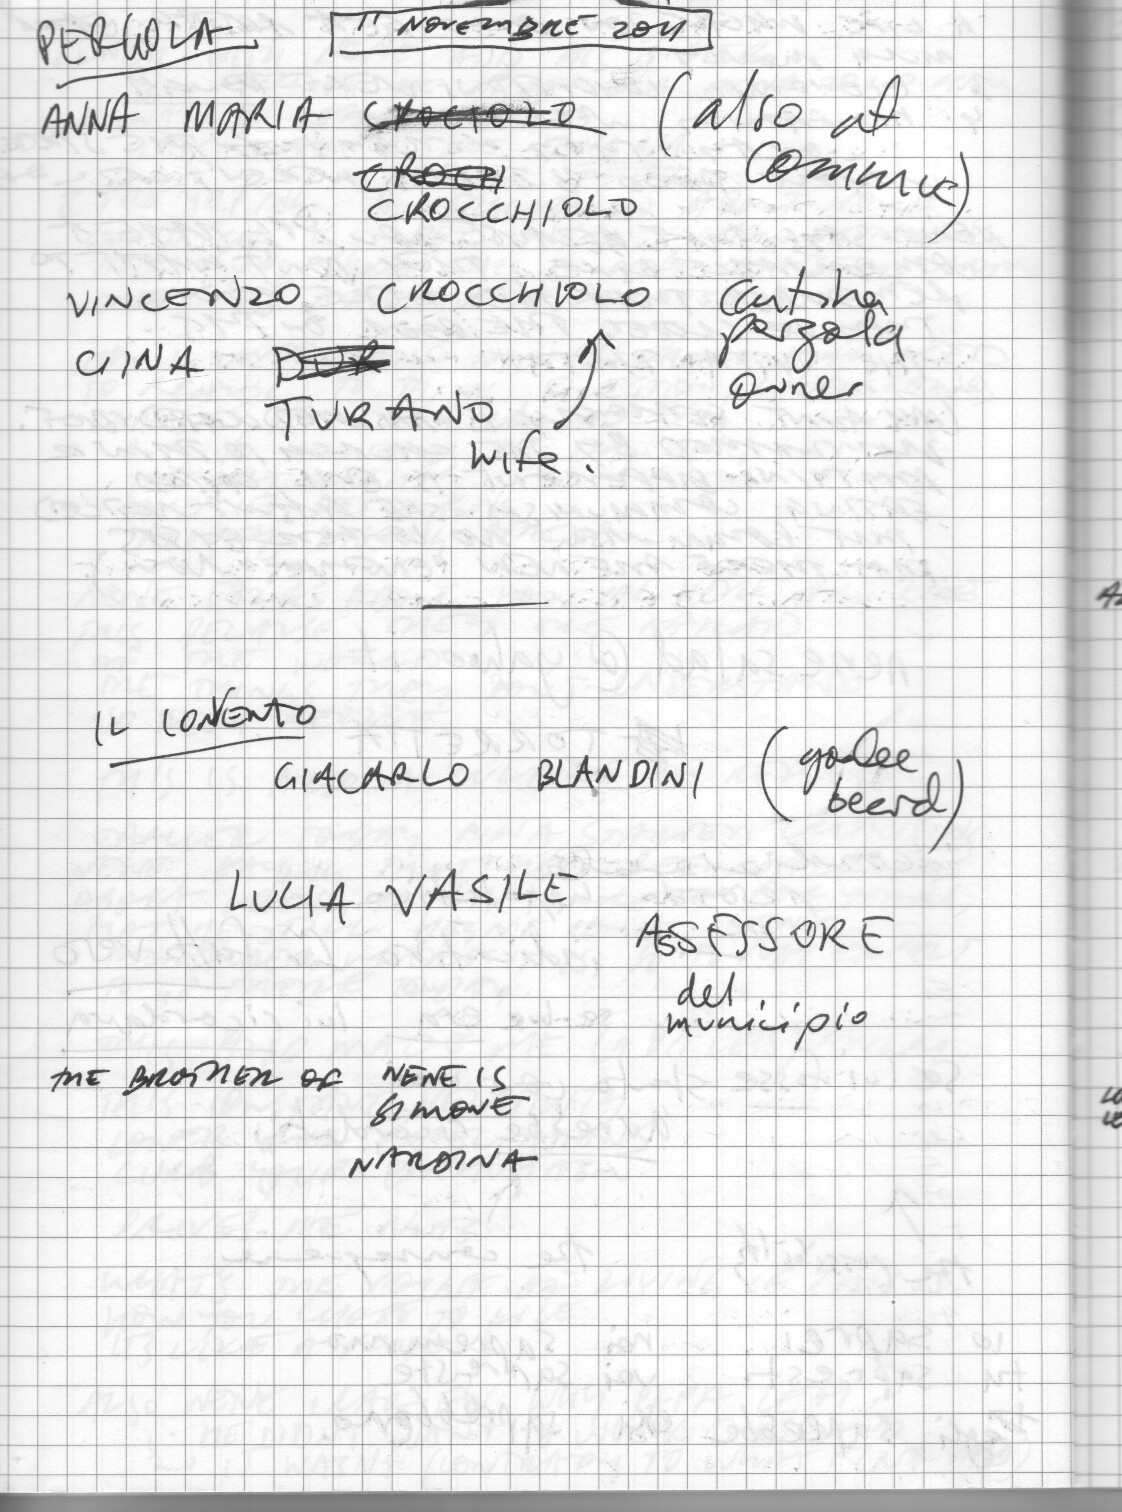 PERGOLA
11 NOVEMBRE 2011
ANNA MARIA CROCIOLO (also at
CROCH Commune)
CROCCHIOLO
VINCENZO CROCCHIOLO Cantina
pergola
GINA DUR owner
TURANO
wife.
IL CONVENTO
GIACARLO BLANDINI (goatee
beard)
LUCIA VASILE
ASSESSORE
del
municipio
THE BROTHER OF NENE IS
SIMONE
NARDINA